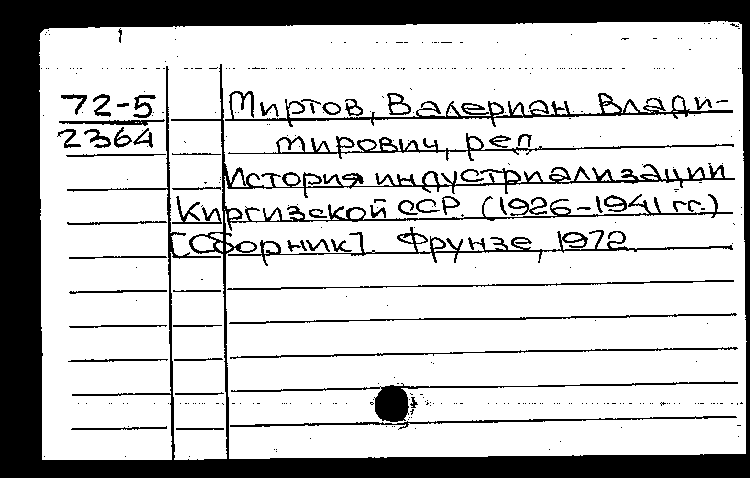 72-5 Миртов, Валериан Влади-
2364 мирович, ред.
История индустриализации
Киргизской ССР. (1926-1941 гг.)
[Сборник]. Фрунзе, 1972.